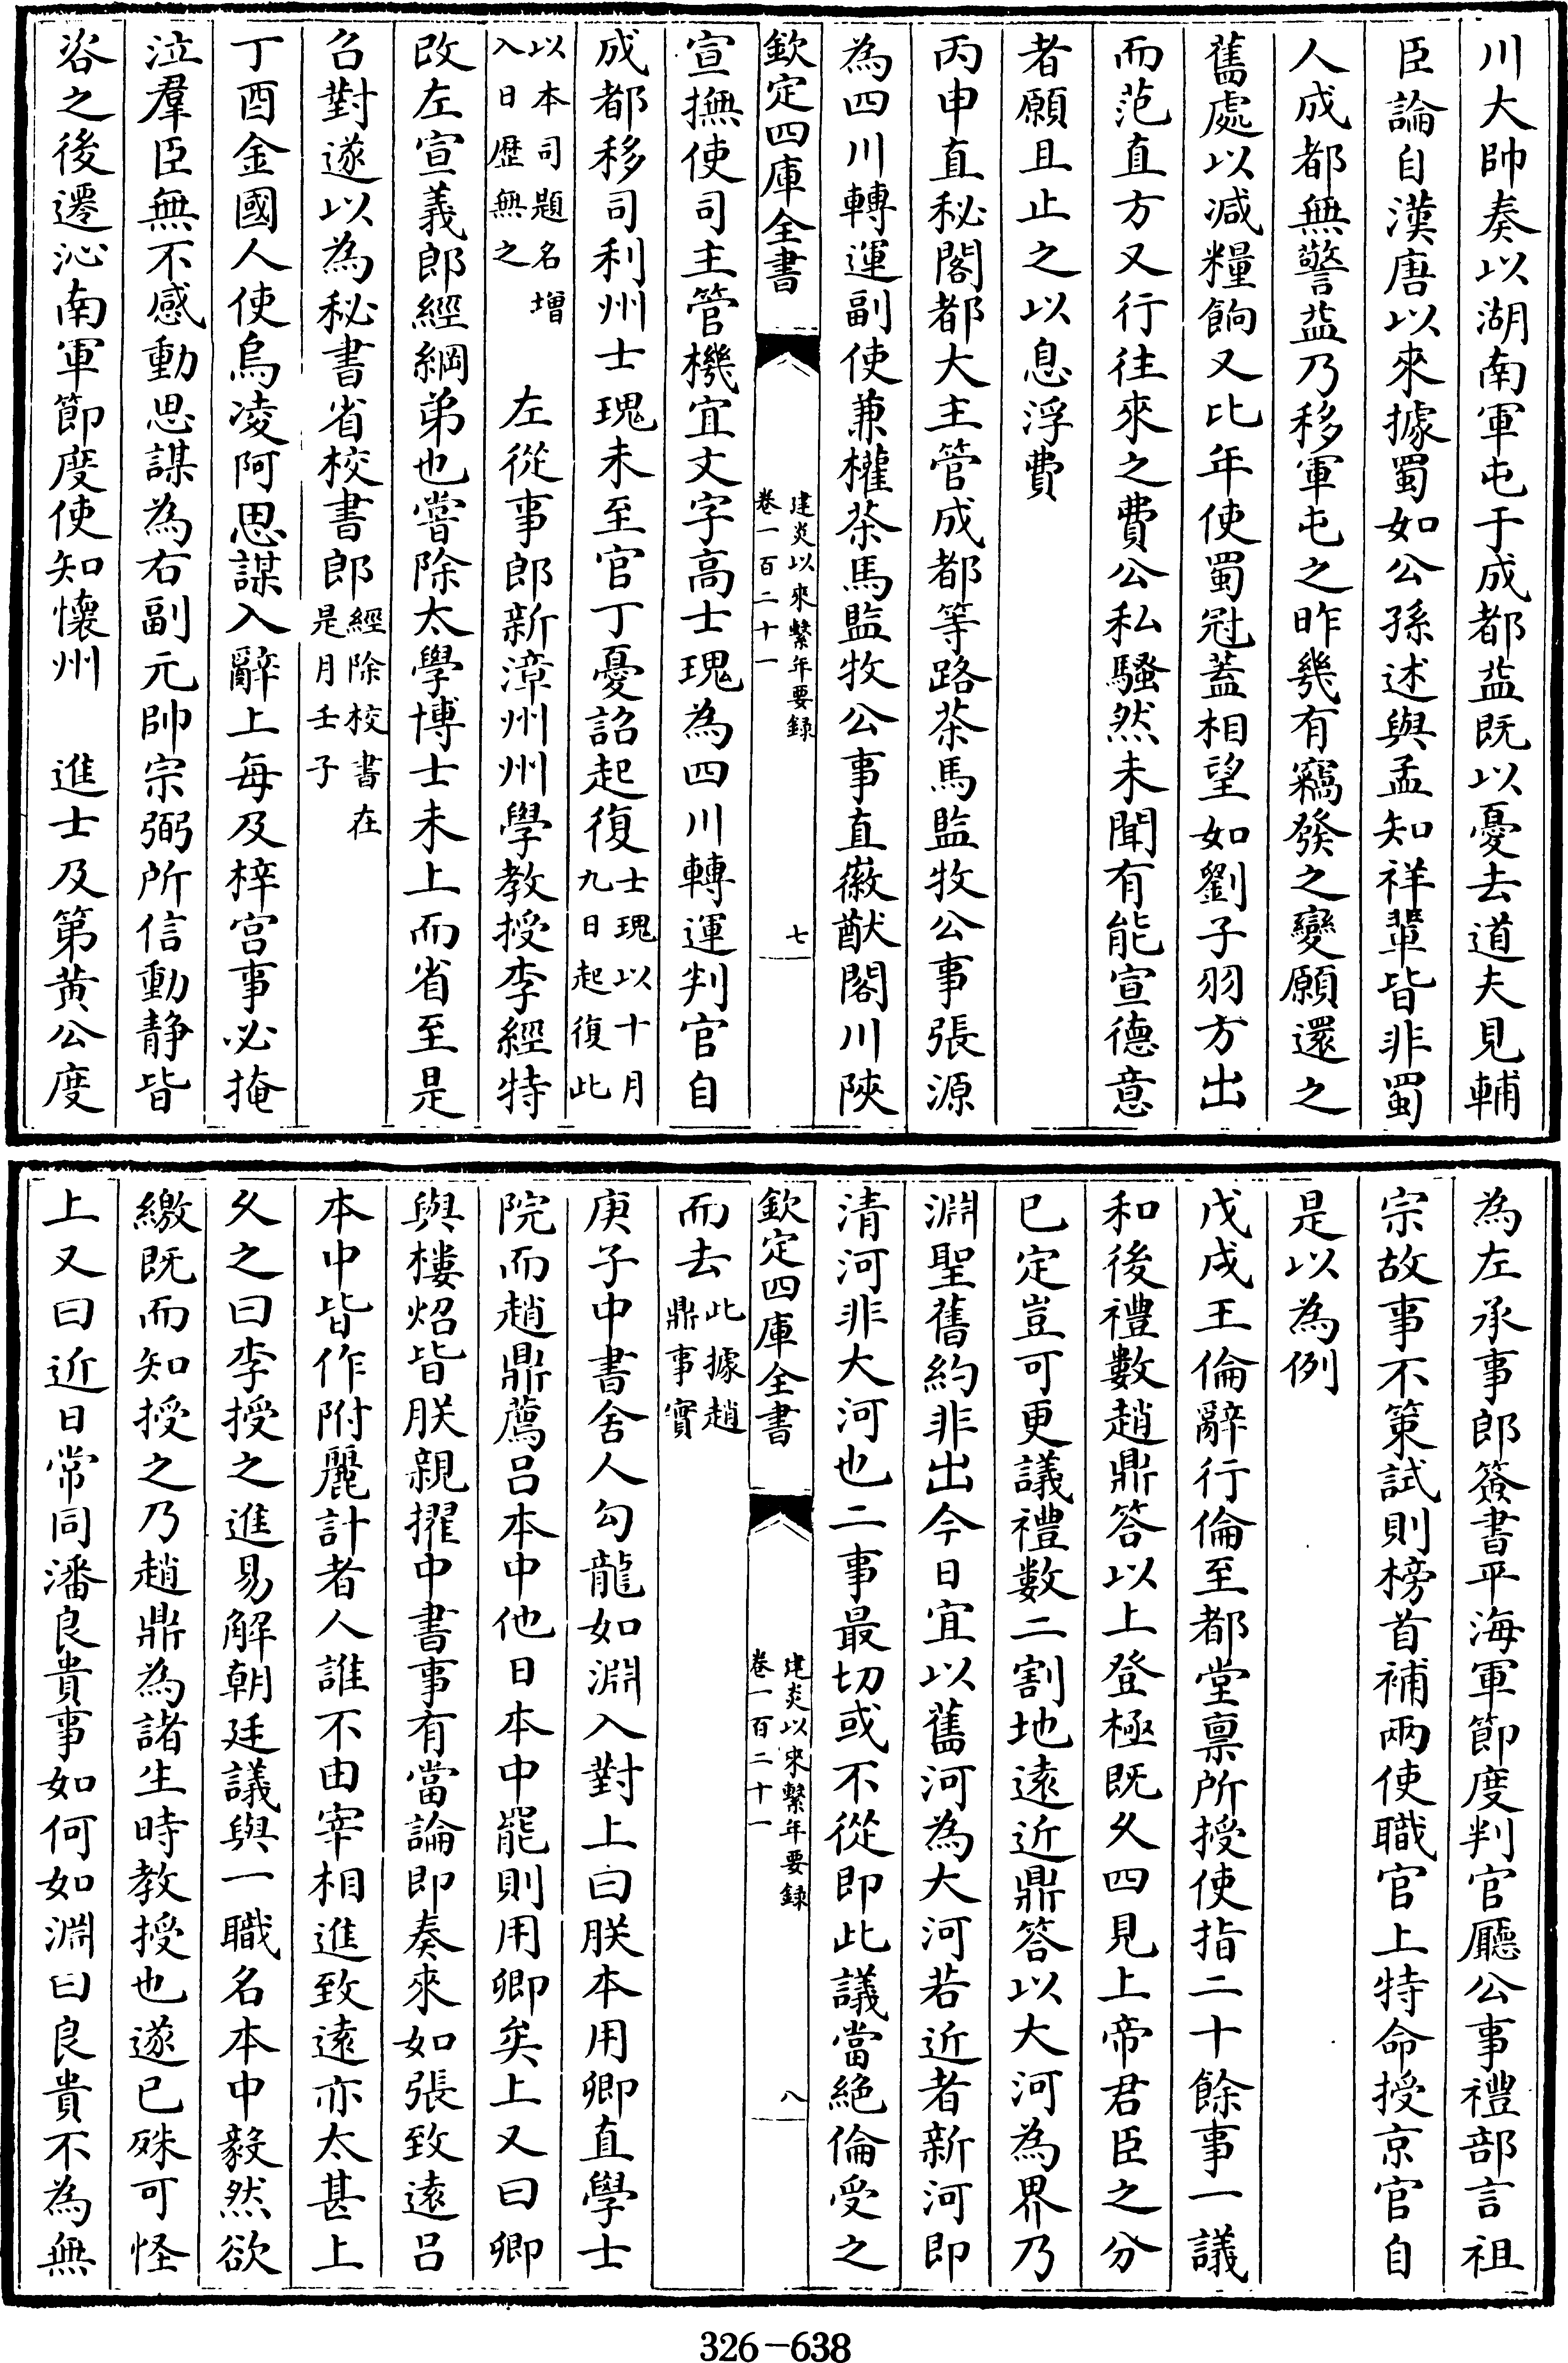 川大帥奏以湖南軍屯于成都益既以憂去道夫見輔
臣論自漢唐以來據蜀如公孫述與孟知祥輩皆非蜀
人成都無警益乃移軍屯之昨幾有竊發之變願還之
舊處以減糧餉又比年使蜀冠蓋相望如劉子羽方出
而范直方又行往來之費公私騷然未聞有能宣德意
者願且止之以息浮費
丙申直秘閣都大主管成都等路茶馬監牧公事張源
為四川轉運副使兼權茶馬監牧公事直徽猷閣川陜
欽定四庫全書
建炎以來繫年要録
卷一百二十一
七
宣撫使司主管機宜文字高士瑰為四川轉運判官自
成都移司利州士瑰未至官丁憂詔起復士瑰以十月
九日起復此
以本司題名增
入日歷無之
左從事郎新漳州州學教授李經特
改左宣義郎經綱弟也嘗除太學博士未上而省至是
召對遂以為秘書省校書郎經除校書在
是月壬子
丁酉金國人使烏凌阿思謀入辭上每及梓宮事必掩
泣羣臣無不感動思謀為右副元帥宗弼所信動静皆
咨之後遷沁南軍節度使知懷州 進士及第黄公度
為左承事郎簽書平海軍節度判官廳公事禮部言祖
宗故事不策試則榜首補兩使職官上特命授京官自
是以為例
戊戌王倫辭行倫至都堂禀所授使指二十餘事一議
和後禮數趙鼎答以上登極既久四見上帝君臣之分
已定豈可更議禮數二割地遠近鼎答以大河為界乃
淵聖舊約非出今日宜以舊河為大河若近者新河即
清河非大河也二事最切或不從即此議當絶倫受之
欽定四庫全書
建炎以來繫年要録
卷一百二十一
八
而去此據趙
鼎事實
庚子中書舍人勾龍如淵入對上曰朕本用卿直學士
院而趙鼎薦呂本中他日本中罷則用卿矣上又曰卿
與樓炤皆朕親擢中書事有當論即奏來如張致遠呂
本中皆作附麗計者人誰不由宰相進致遠亦太甚上
久之曰李授之進易解朝廷議與一職名本中毅然欲
繳既而知授之乃趙鼎為諸生時教授也遂已殊可怪
上又曰近日常同潘良貴事如何如淵曰良貴不為無
326-638